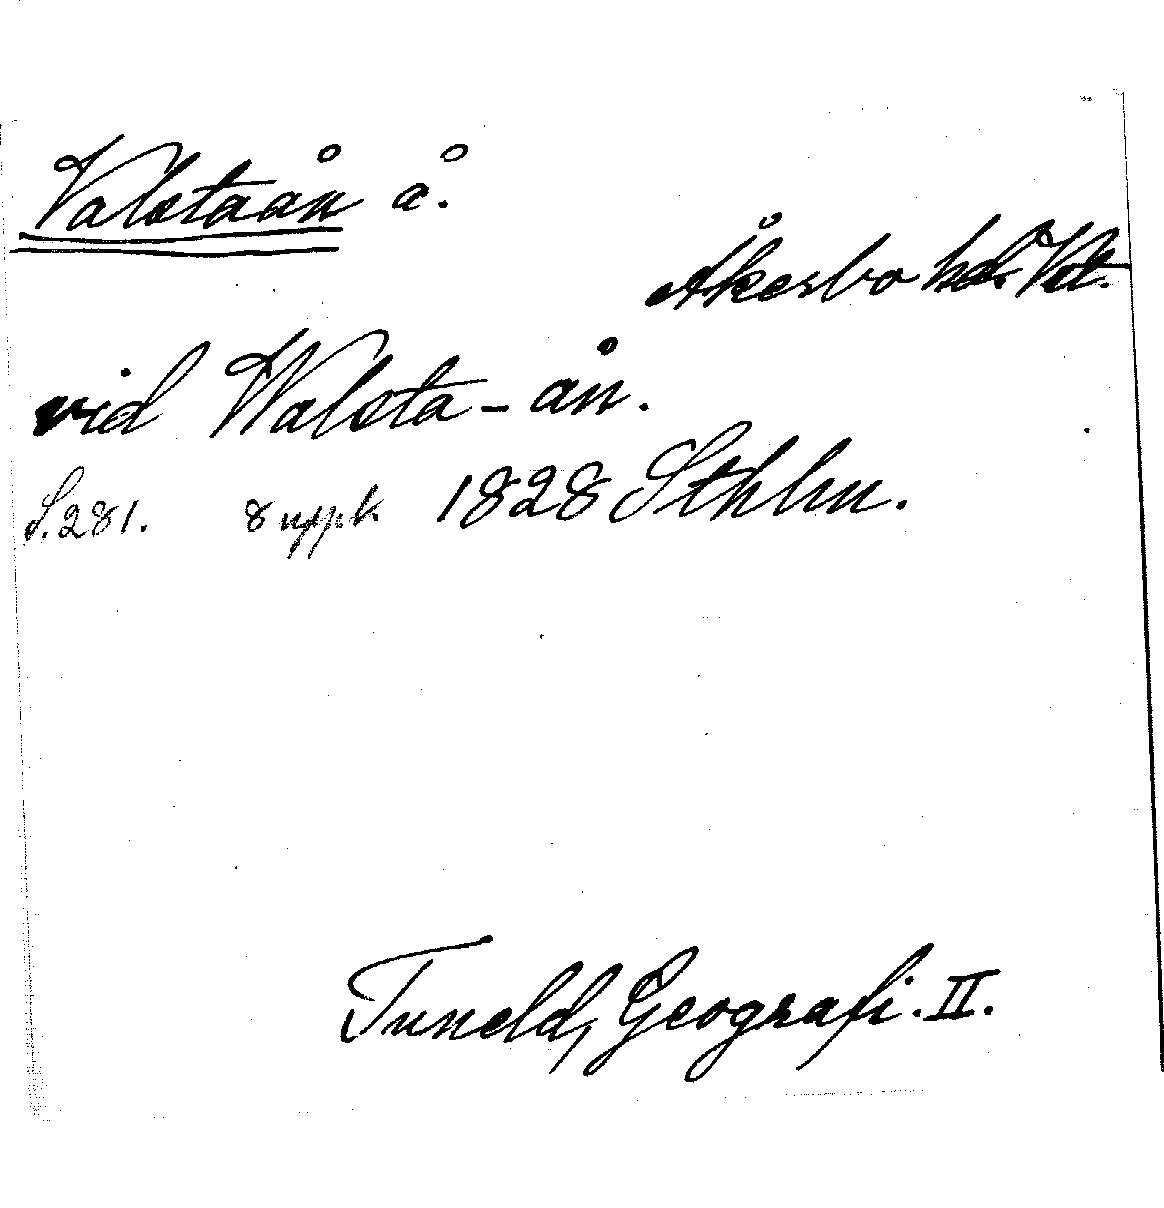 Valstaån å.
Åkerbo hd. Vstm.
vid Walsta-ån.
S.281. 8 uppl. 1828 Sthlm.
Tuneld, Geografi. II.